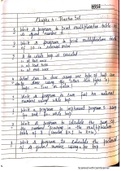 Chapter 7 - Practice Set
1. Write a program to print multiplication table
of a given number n.
2. Write a program to print multiplication table
of 10 in reversed order.
3. A do while loop is executed
4. What can be done using one type of loop can
also be done using the other two types of
loops - True or False.
5. Write a program to sum first ten natural
numbers using while loop.
6. Write a program to implement program 5 using
for and do while loop.
7. Write a program to calculate the sum of
the numbers occurring in the multiplication
table of 8.
8. Write a program to calculate the factorial
of a given number using a for loop.